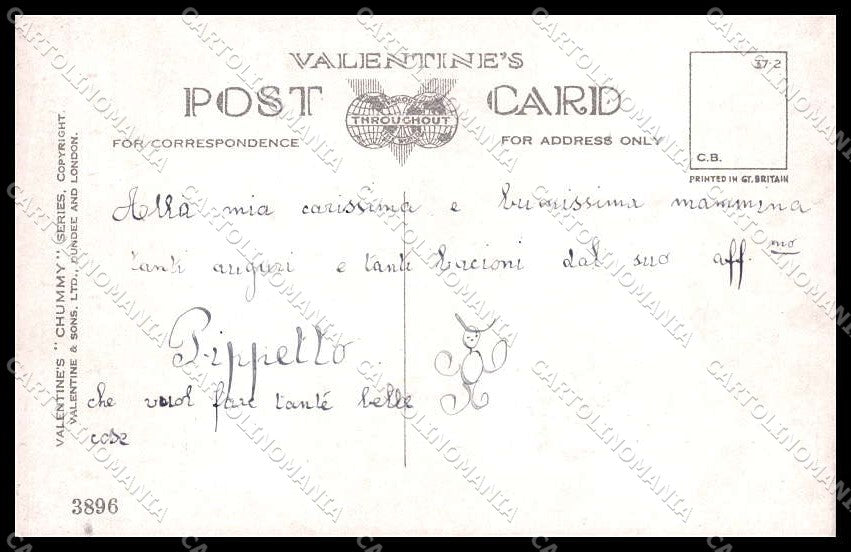 VALENTINE'S
POST CARD
THROUGHOUT
FOR CORRESPONDENCE
FOR ADDRESS ONLY
37-2
C.B.
PRINTED IN GT. BRITAIN
VALENTINE'S "CHUMMY" SERIES. COPYRIGHT.
VALENTINE & SONS, LTD., DUNDEE AND LONDON.
Alla mia carissima e buonissima mammina
tanti auguri e tanti bacioni dal suo aff.mo
Pippetto
che vuol fare tante belle
cose
3896
CARTOLINOMANIA